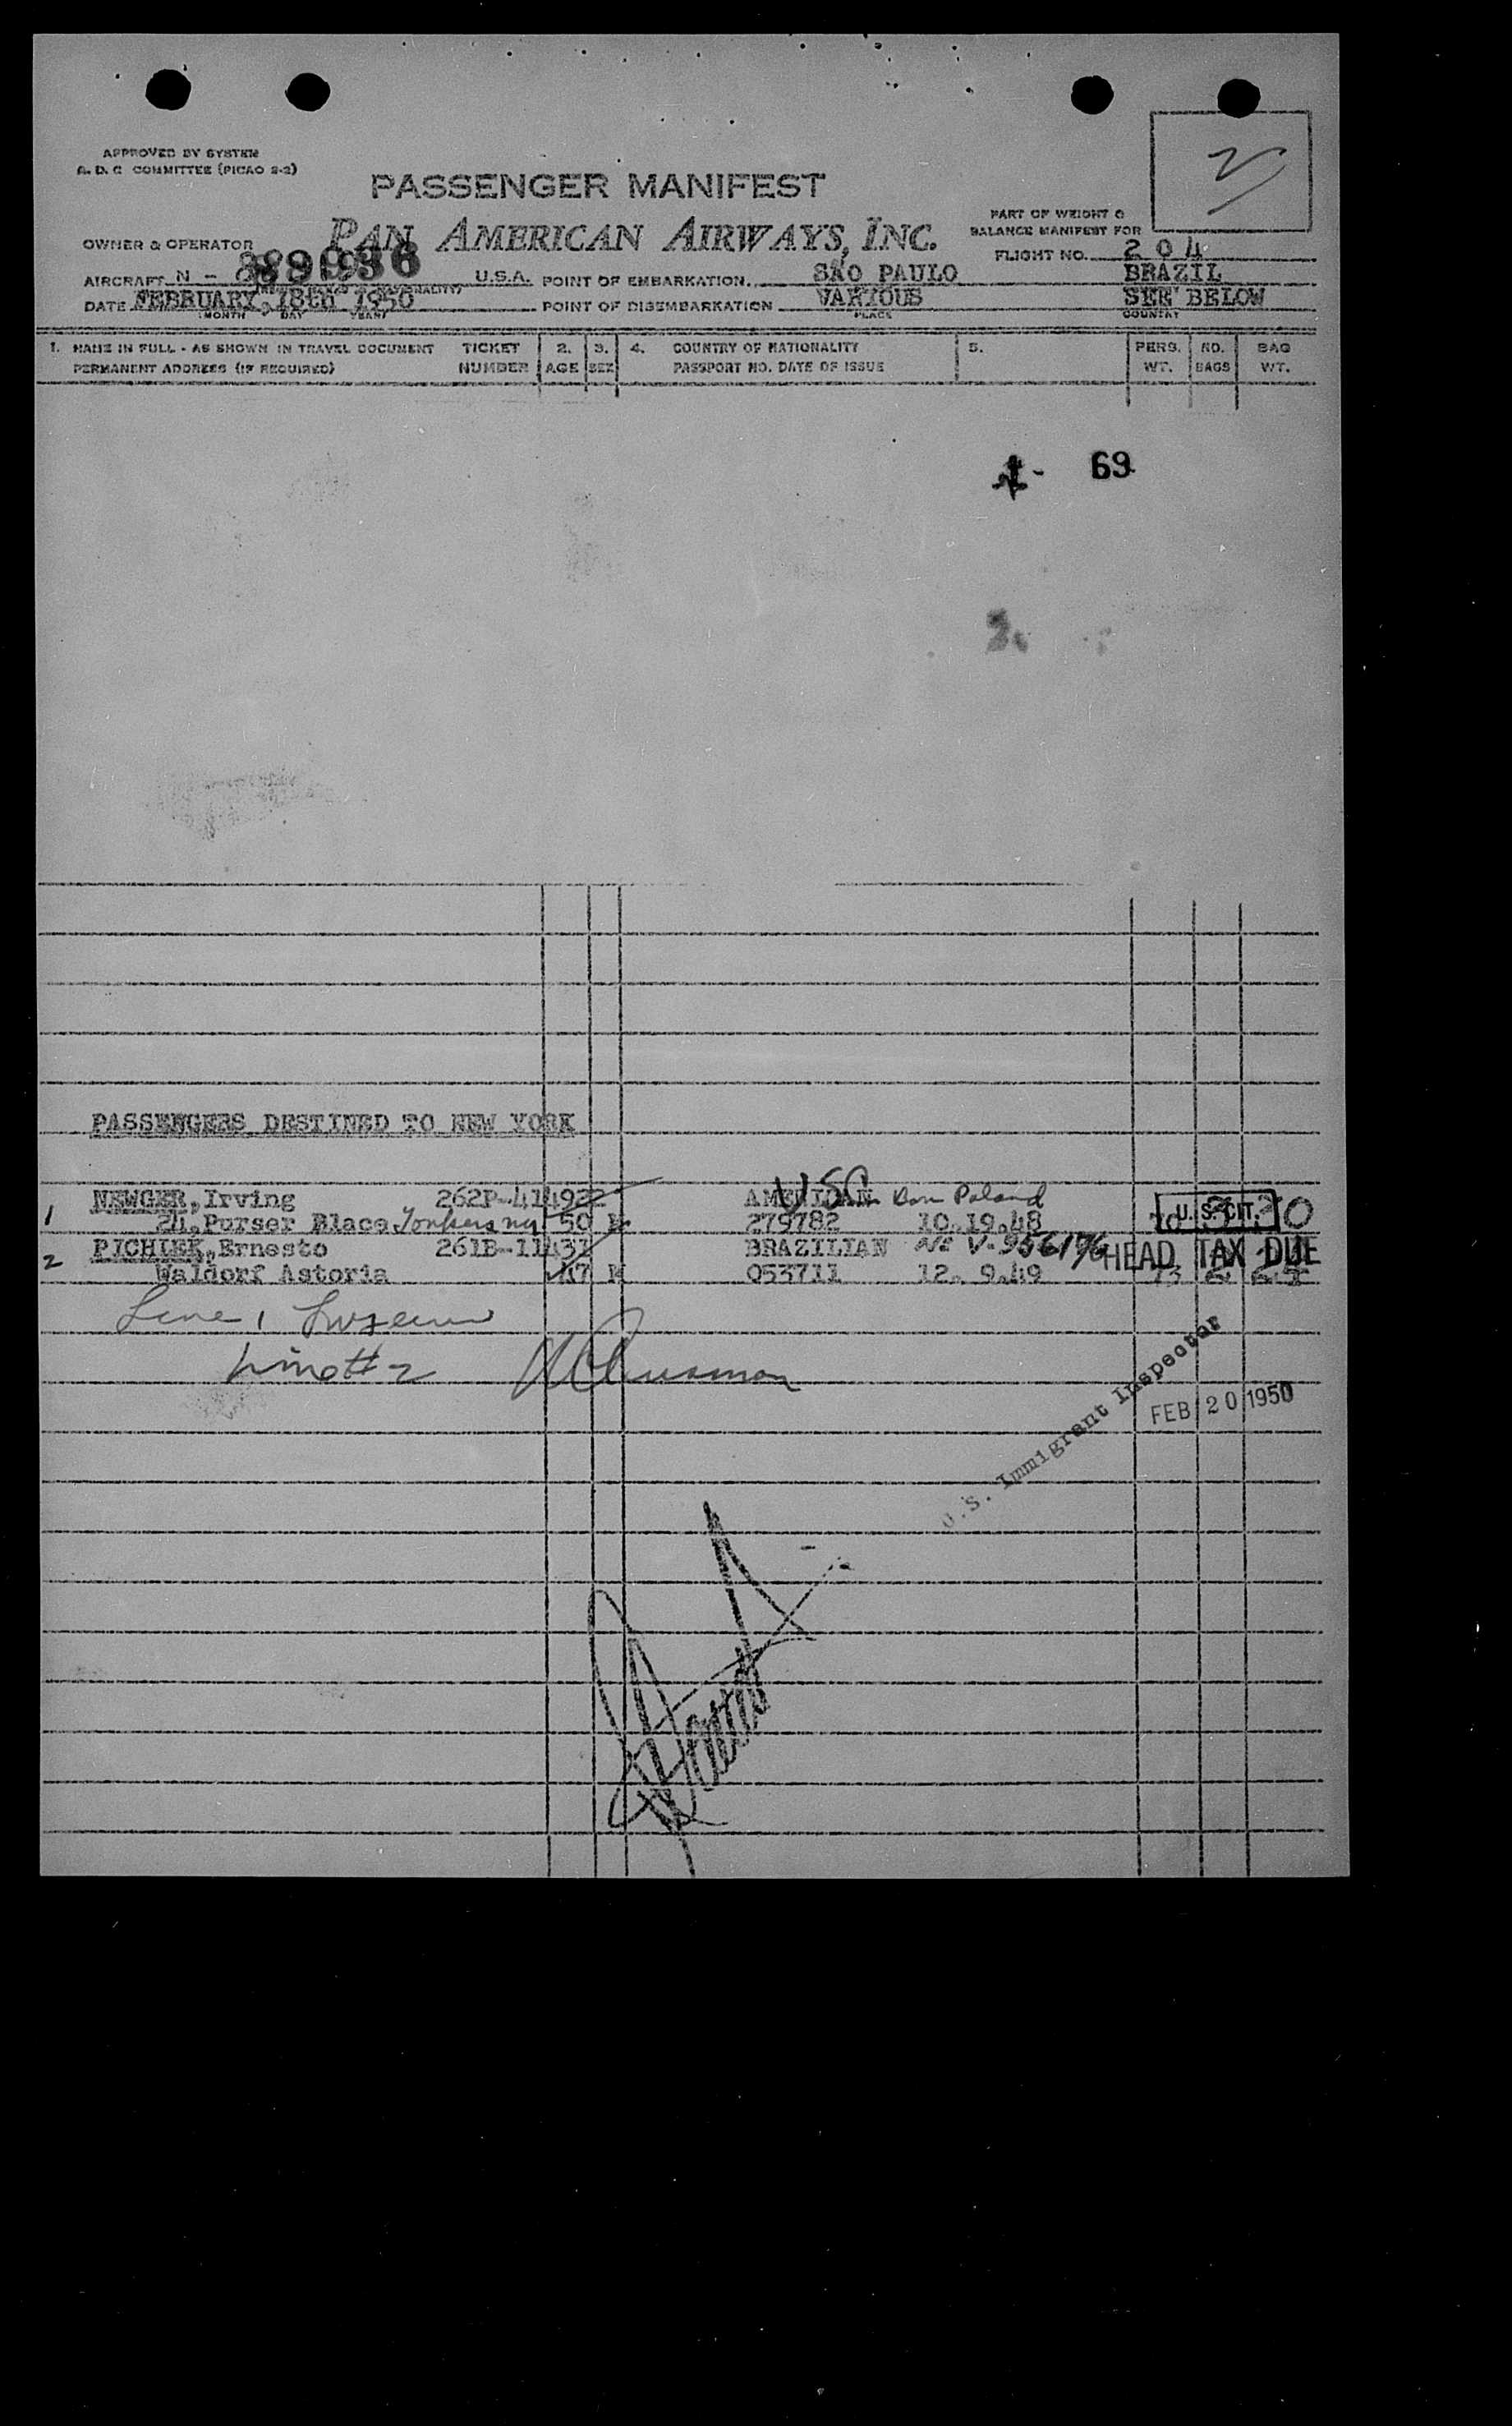 APPROVED BY SYSTEM
A. D. C COMMITTEE (PICAO 2-2)
PASSENGER MANIFEST
2
OWNER & OPERATOR PAN AMERICAN AIRWAYS, INC.
PART OF WEIGHT &
BALANCE MANIFEST FOR
FLIGHT NO. 204
AIRCRAFT N - U.S.A. POINT OF EMBARKATION. SÃO PAULO BRAZIL
DATE FEBRUARY 18th 1950 POINT OF DISEMBARKATION VARIOUS SEE BELOW
MONTH DAY YEAR PLACE COUNTRY
1. NAME IN FULL - AS SHOWN IN TRAVEL DOCUMENT TICKET 2. 3. 4. COUNTRY OF NATIONALITY 5. PERS. NO. BAG
PERMANENT ADDRESS (IF REQUIRED) NUMBER AGE SEX PASSPORT NO. DATE OF ISSUE WT. BAGS WT.
69
PASSENGERS DESTINED TO NEW YORK
1 NEWGER, Irving 262P-414922 AMERICAN USC Born Poland
24, Purser Place Yonkers NY 50 M 279782 10.19.48 U.S. CIT.
2 PICHLER, Ernesto 261B-11431 BRAZILIAN V-956176 HEAD TAX DUE
Waldorf Astoria 47 M 053711 12. 9.49
Line 1
Line # 2
U.S. Immigrant Inspector
FEB 20 1950